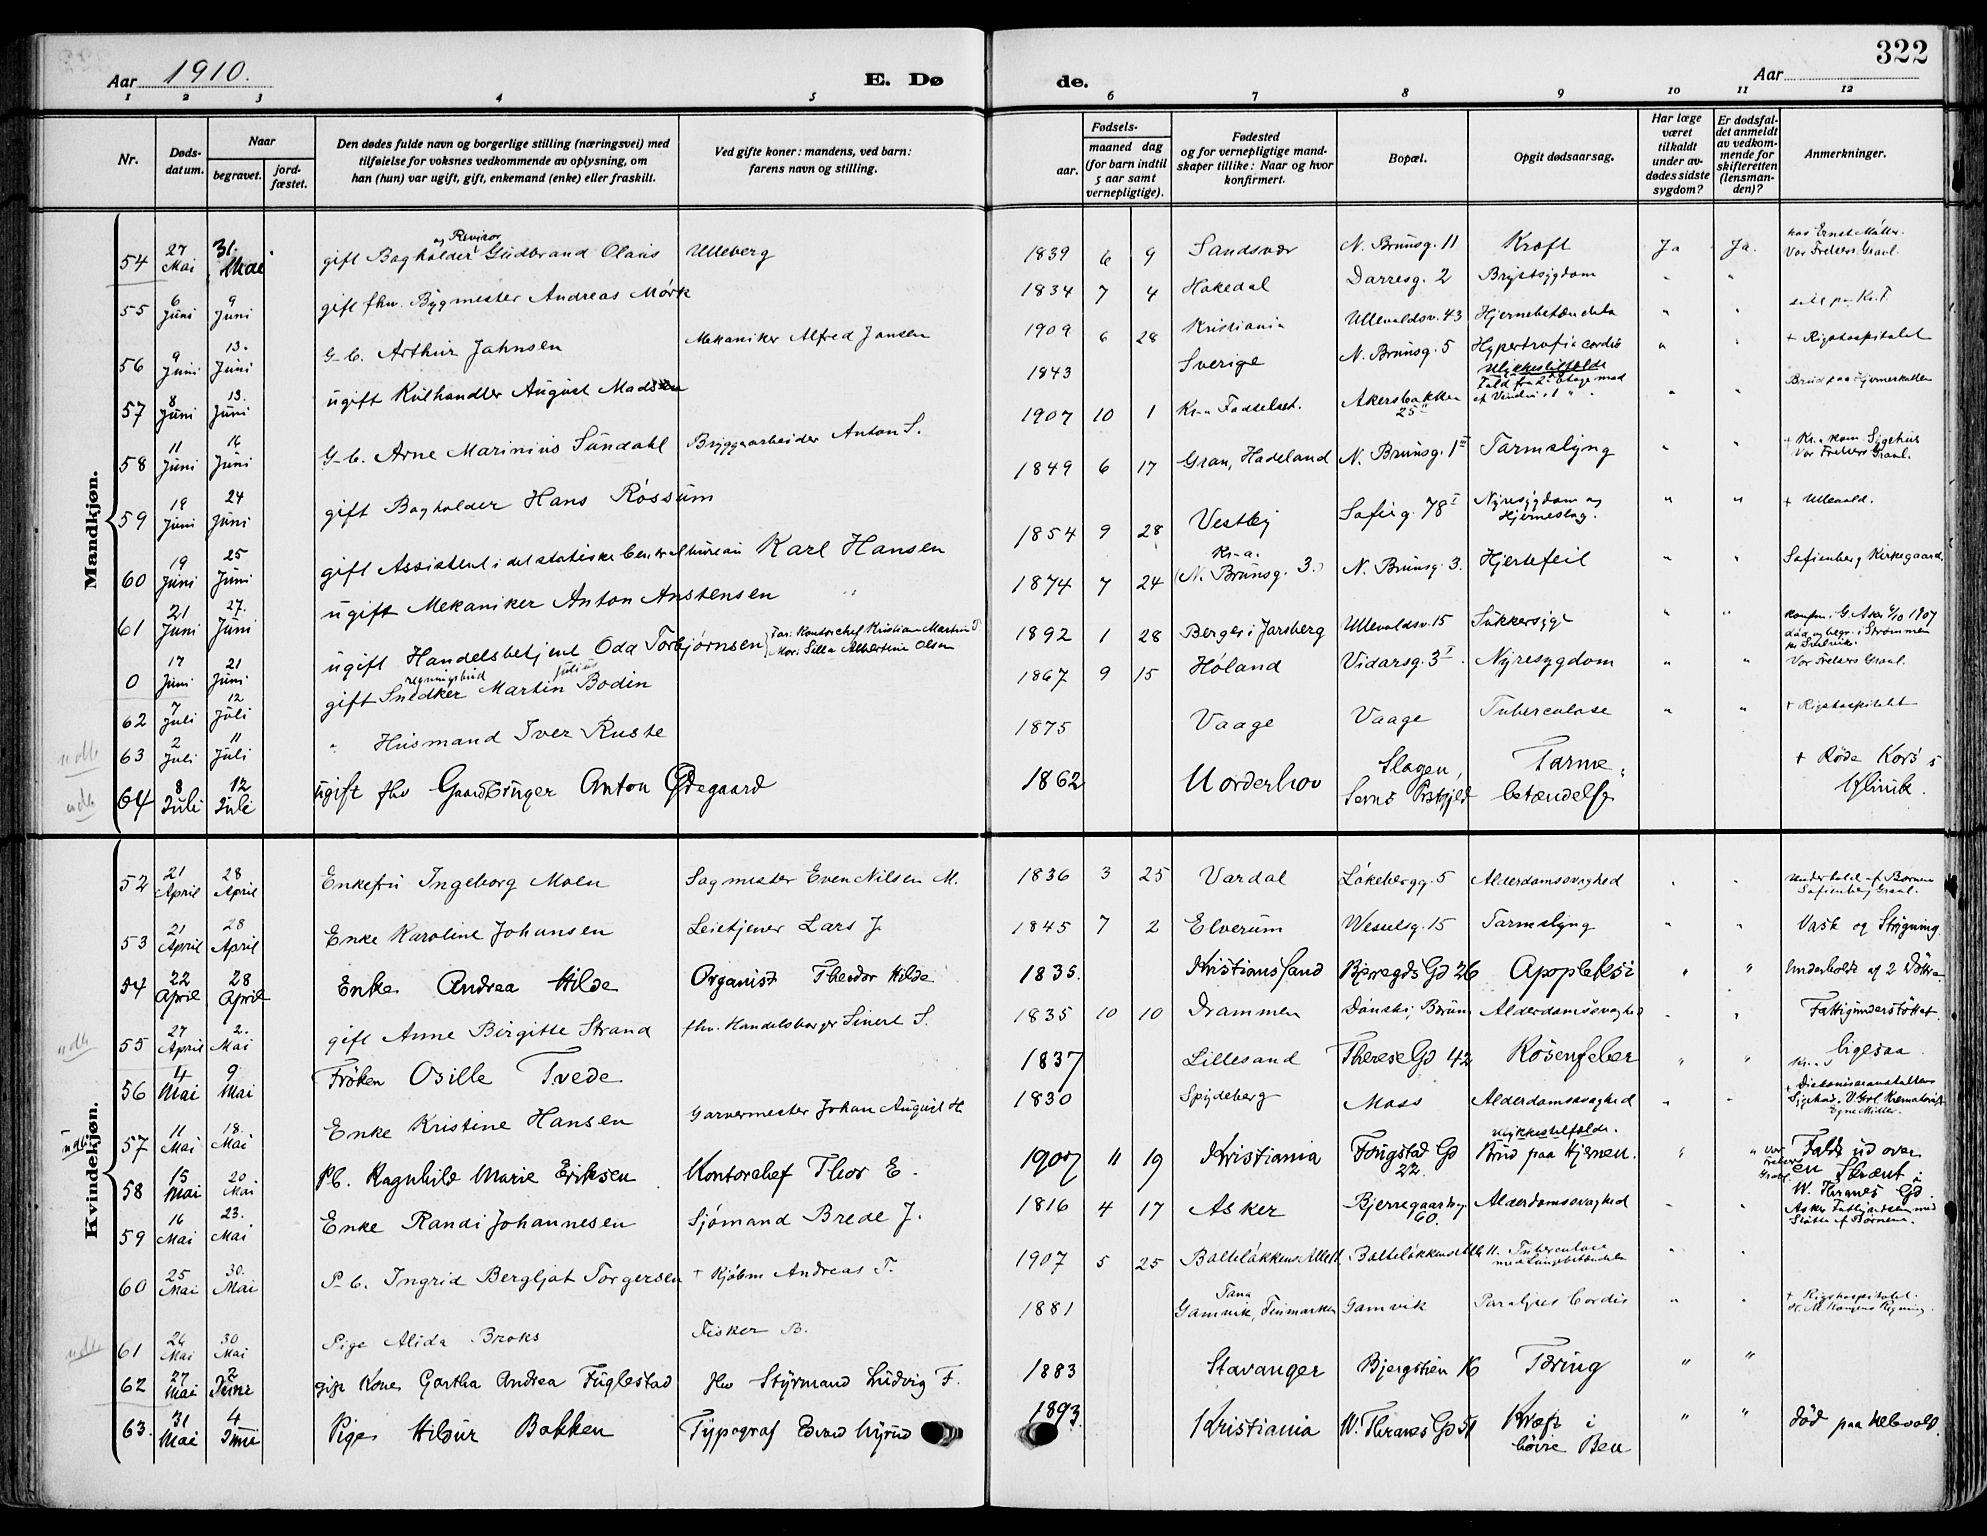 322
Aar 1910.
E. Døde.
Aar
1 2 3 4 5 6 7 8 9 10 11 12
Nr.
Døds-datum.
Naar
begravet.
jord-fæstet.
Den dødes fulde navn og borgerlige stilling (næringsvei) med
tilføielse for voksnes vedkommende av oplysning, om
han (hun) var ugift, gift, enkemand (enke) eller fraskilt.
Ved gifte koner: mandens, ved barn:
farens navn og stilling.
Fødsels-
aar.
maaned dag
(for barn indtil
5 aar samt
vernepligtige).
Fødested
og for vernepligtige mand-
skaper tillike: Naar og hvor
konfirmert.
Bopæl.
Opgit dødsaarsag.
Har læge
været
tilkaldt
under av-
dødes sidste
sygdom?
Er dødsfal-
det anmeldt
av vedkom-
mende for
skifteretten
(lensman-
den)?
Anmerkninger.
Mandkjøn.
54 27 Mai 31. Mai gift Bogholder og Revisor Gudbrand Olaus Ulleberg 1839 6 9 Sandsvær N. Brunsg. 11 Kræft Ja Ja. Vor Frelsers Gravl.
55 6 Juni 9 Juni gift fhv. Bygmester Andreas Mørk 1834 7 4 Hakedal Darresg. 2 Brystsygdom " "
56 9 Juni 13. Juni G-b. Arthur Jahnsen Mekaniker Alfred Jansen 1909 6 28 Kristiania Ullevoldsv. 43 Hjernebetændelse " " + Rigshospitalet
57 8 Juni 13. Juni ugift Kulhandler August Madsen 1843 Sverige N. Brunsg. 5 Hypertrofia cordis " "
58 11 Juni 16 Juni G-b. Arne Marinius Sundahl Bryggearbeider Anton S. 1907 10 1 Kr-a Fødselsst. Akersbakken 25 Ulykkestilfælde Fald fra 2. Etage med et Vindu " " Brud paa Hjerneskallen
59 19 Juni 24 Juni gift Bogholder Hans Røssum 1849 6 17 Gran, Hadeland N. Brunsg. 1 II Tarmslyng " " + Kr.a kom. Sygehus Vor Frelsers Gravl.
60 19 Juni 25 Juni gift Assistent i det statistiske Centralbureau Karl Hansen 1854 9 28 Vestby Sofieg. 78 I Nyresygdom og Hjerneslag. " " + Ullevold.
61 21 Juni 27. Juni ugift Mekaniker Anton Anstensen " 1874 7 24 Kr-a. (N. Brunsg. 3.) N. Brunsg. 3. Hjertefeil " " Sofienberg Kirkegaard
0 17 Juni 21 Juni ugift Handelsbetjent Oda Torbjørnsen Far: Kontorchef Kristian Martin T Mor: Silla Albertine Olsen 1892 1 28 Berger i Jarlsberg Ullevoldsv. 15 Sukkersyge " " konfm. i G. Aker 6/10 1907 død og begr. i Strømmen
62 7 Juli 12 Juli gift Snedker Martin Julius Bodin 1867 9 15 Høland Vidarsg. 3 I Nyresygdom " " Vor Frelsers Gravl.
63 2 Juli 11 Juli " Husmand Iver Ruste 1875 Vaage Vaage Tuberculose " " + Rigshospitalet
64 8 Juli 12 Juli ugift fhv Gaardbruger Anton Ødegaard 1862 Norderhov Slagen, Sems Prstgjeld Tarmbetændelse + Røde Kors's Klinik.
Kvindekjøn.
52 21 April 28 April Enkefru Ingeborg Moen Sagmester Even Nilsen M. 1836 3 25 Vardal Løkebergg. 5 Alderdomssvaghed " " Underholdt af Børnene Sofienberg Gravl.
53 21 April 28 April Enke Karoline Johansen Leietjener Lars J. 1845 7 2 Elverum Wesselsg. 15 Tarmslyng " " Vask og Strygning.
54 22 April 28 April Enke Andrea Hilde Organist Theodor Hilde 1835. Kristianssand Bjeregds Gd 26 Apopleksi " " Underholdt af 2 Døttre
55 27 April 2. Mai gift Anne Birgitte Strand fhv. Handelsborger Sivert S. 1835 10 10 Drammen Dønski, Bærum Alderdomssvaghed " " Fattigunderstøttet.
56 4 Mai 9 Mai Frøken Osille Tvede 1837 Lillesand Therese Gd 42 Rosenfeber " " ligesaa
57 11 Mai 18. Mai Enke Kristine Hansen Garvermester Johan August H. 1830 Spydeberg Moss Alderdomssvaghed " " + Diakonisseanstaltens Sygehus. V. Grl. Krematoriet Egne Midler.
58 15 Mai 20 Mai Pb. Ragnhild Marie Eriksen Kontorchef Thor E. 1907 11 19 Kristiania Fougstad Gd 22. Ulykkestilfælde. Brud paa Hjernen. " " Vor Frelsers Gravl. Faldt ud over en Skrænt i W. Thranes Gd.
59 16 Mai 23. Mai Enke Randi Johannesen Sjømand Brede J. 1816 4 17 Asker Bjerregaardsg. 60. Alderdomssvaghed " " Asker Fattigvæsen med Støtte af Børnene.
60 25 Mai 30. Mai P-b. Ingrid Bergljot Torgersen + Kjøbm Andreas T. 1907 5 25 Balteløkkens Allé 11. Balteløkkens Allé 11. Tuberculose med Lungebetændelse " "
61 26 Mai 30 Mai Pige Alida Broks Fisker B. 1881 Tana Gamvik, Finmarken Gamvik Paralyses Cordis " " + Rigshospitalet.
62 27 Mai 2 Juni gift Kone Gartha Andrea Fuglestad fhv Styrmand Ludvig F. 1883 Stavanger Bjergstien 16 Tæring " "
63. 31 Mai 4 Juni Pige Hildur Bakken Typograf Edvard 1893. Kristiania W. Thranes Gd 51 Kræft i høire Ben " " død paa Ullevold.